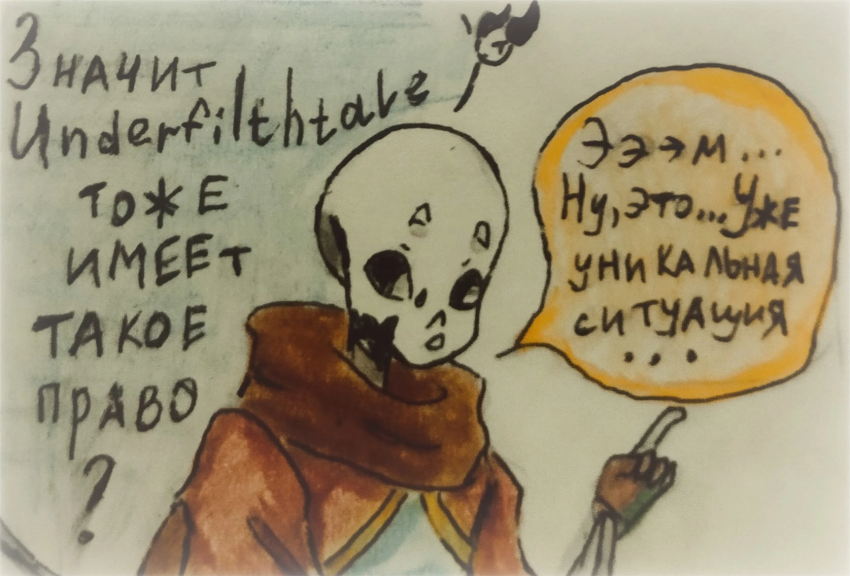 Значит
Underfilthtale
тоже
имеет
такое
право
?
Эээм...
Ну, это... Уже
уникальная
ситуация
...